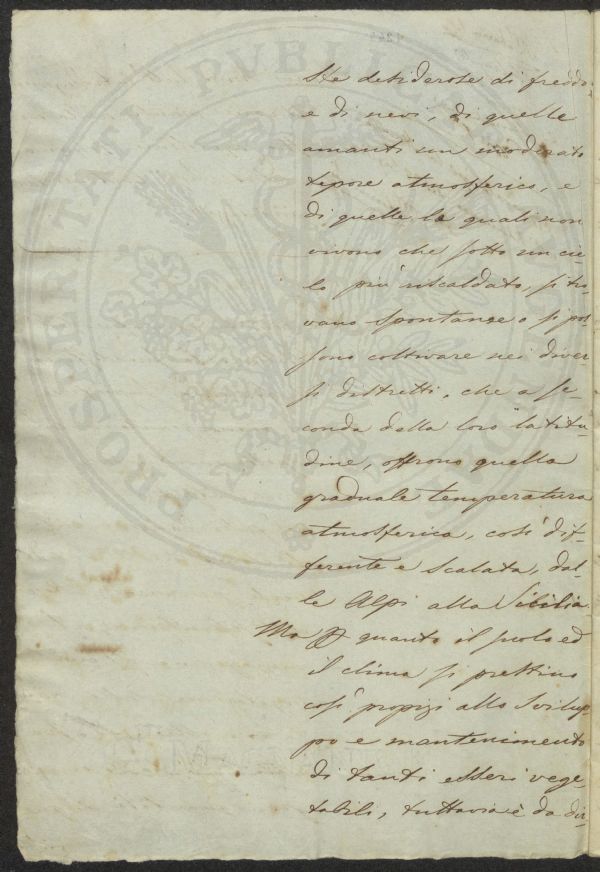 ste desiderose di freddo
e di nevi, di quelle
amanti un moderato
tepore atmosferico, e
di quelle le quali non
vivono che sotto un cie-
lo più riscaldato, si tro-
vano spontanee o si pos-
sono coltivare nei diver-
si distretti, che a se-
conda della loro latitu-
dine, offrono quella
graduale temperatura
atmosferica, così dif-
ferente e scalata, dal-
le Alpi alla Sicilia.
Ma p quanto il suolo ed
il clima si prestino
così propizi allo svilup-
po e mantenimento
di tanti esseri vege-
tabili, tuttavia è da dir-
PROSPERITATI PVBLICAE